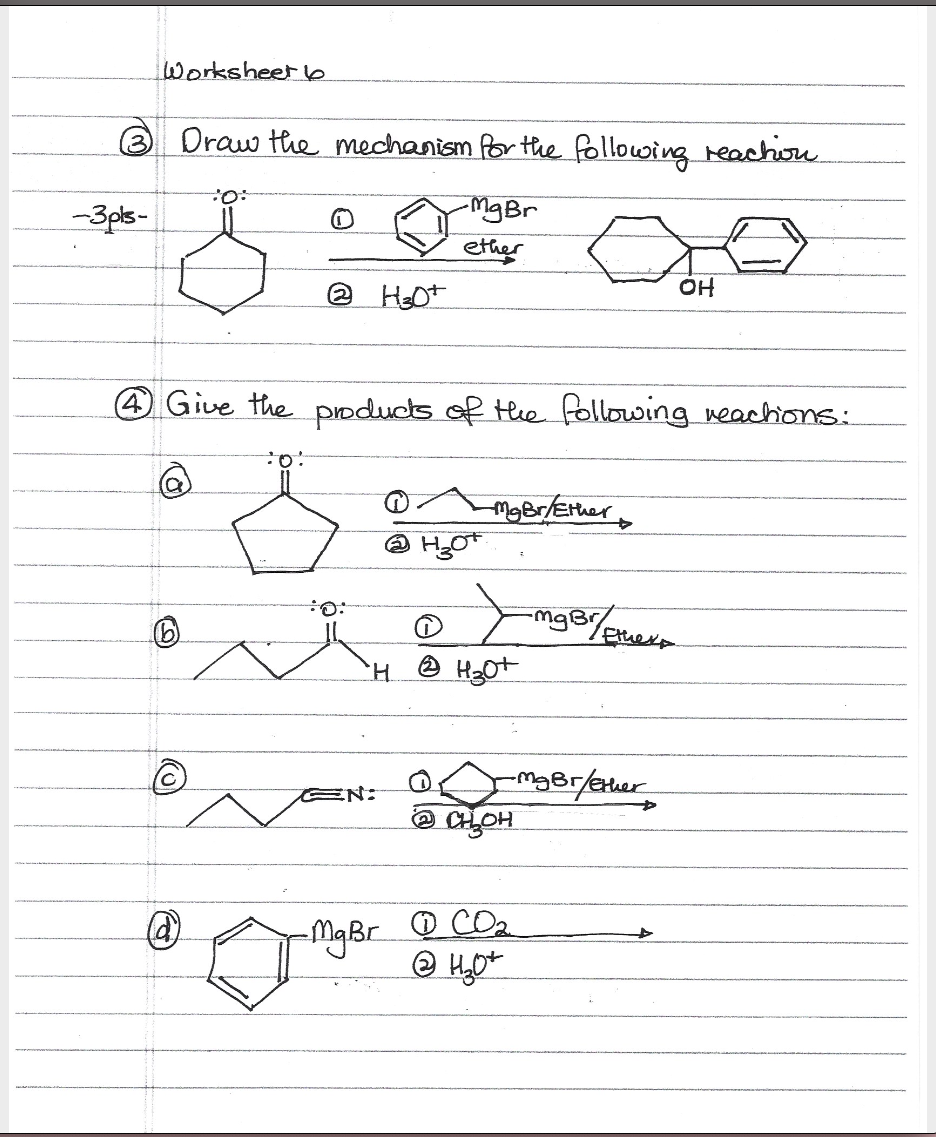 Worksheet 6
③ Draw the mechanism for the following reaction
-3pts-
:O:
① MgBr
ether
② H₃O⁺
OH
④ Give the products of the following reactions:
ⓐ :O:
① MgBr/Ether
② H₃O⁺
ⓑ :O:
H
① MgBr/Ether
② H₃O⁺
ⓒ C≡N:
① MgBr/Ether
② CH₃OH
ⓓ MgBr
① CO₂
② H₃O⁺